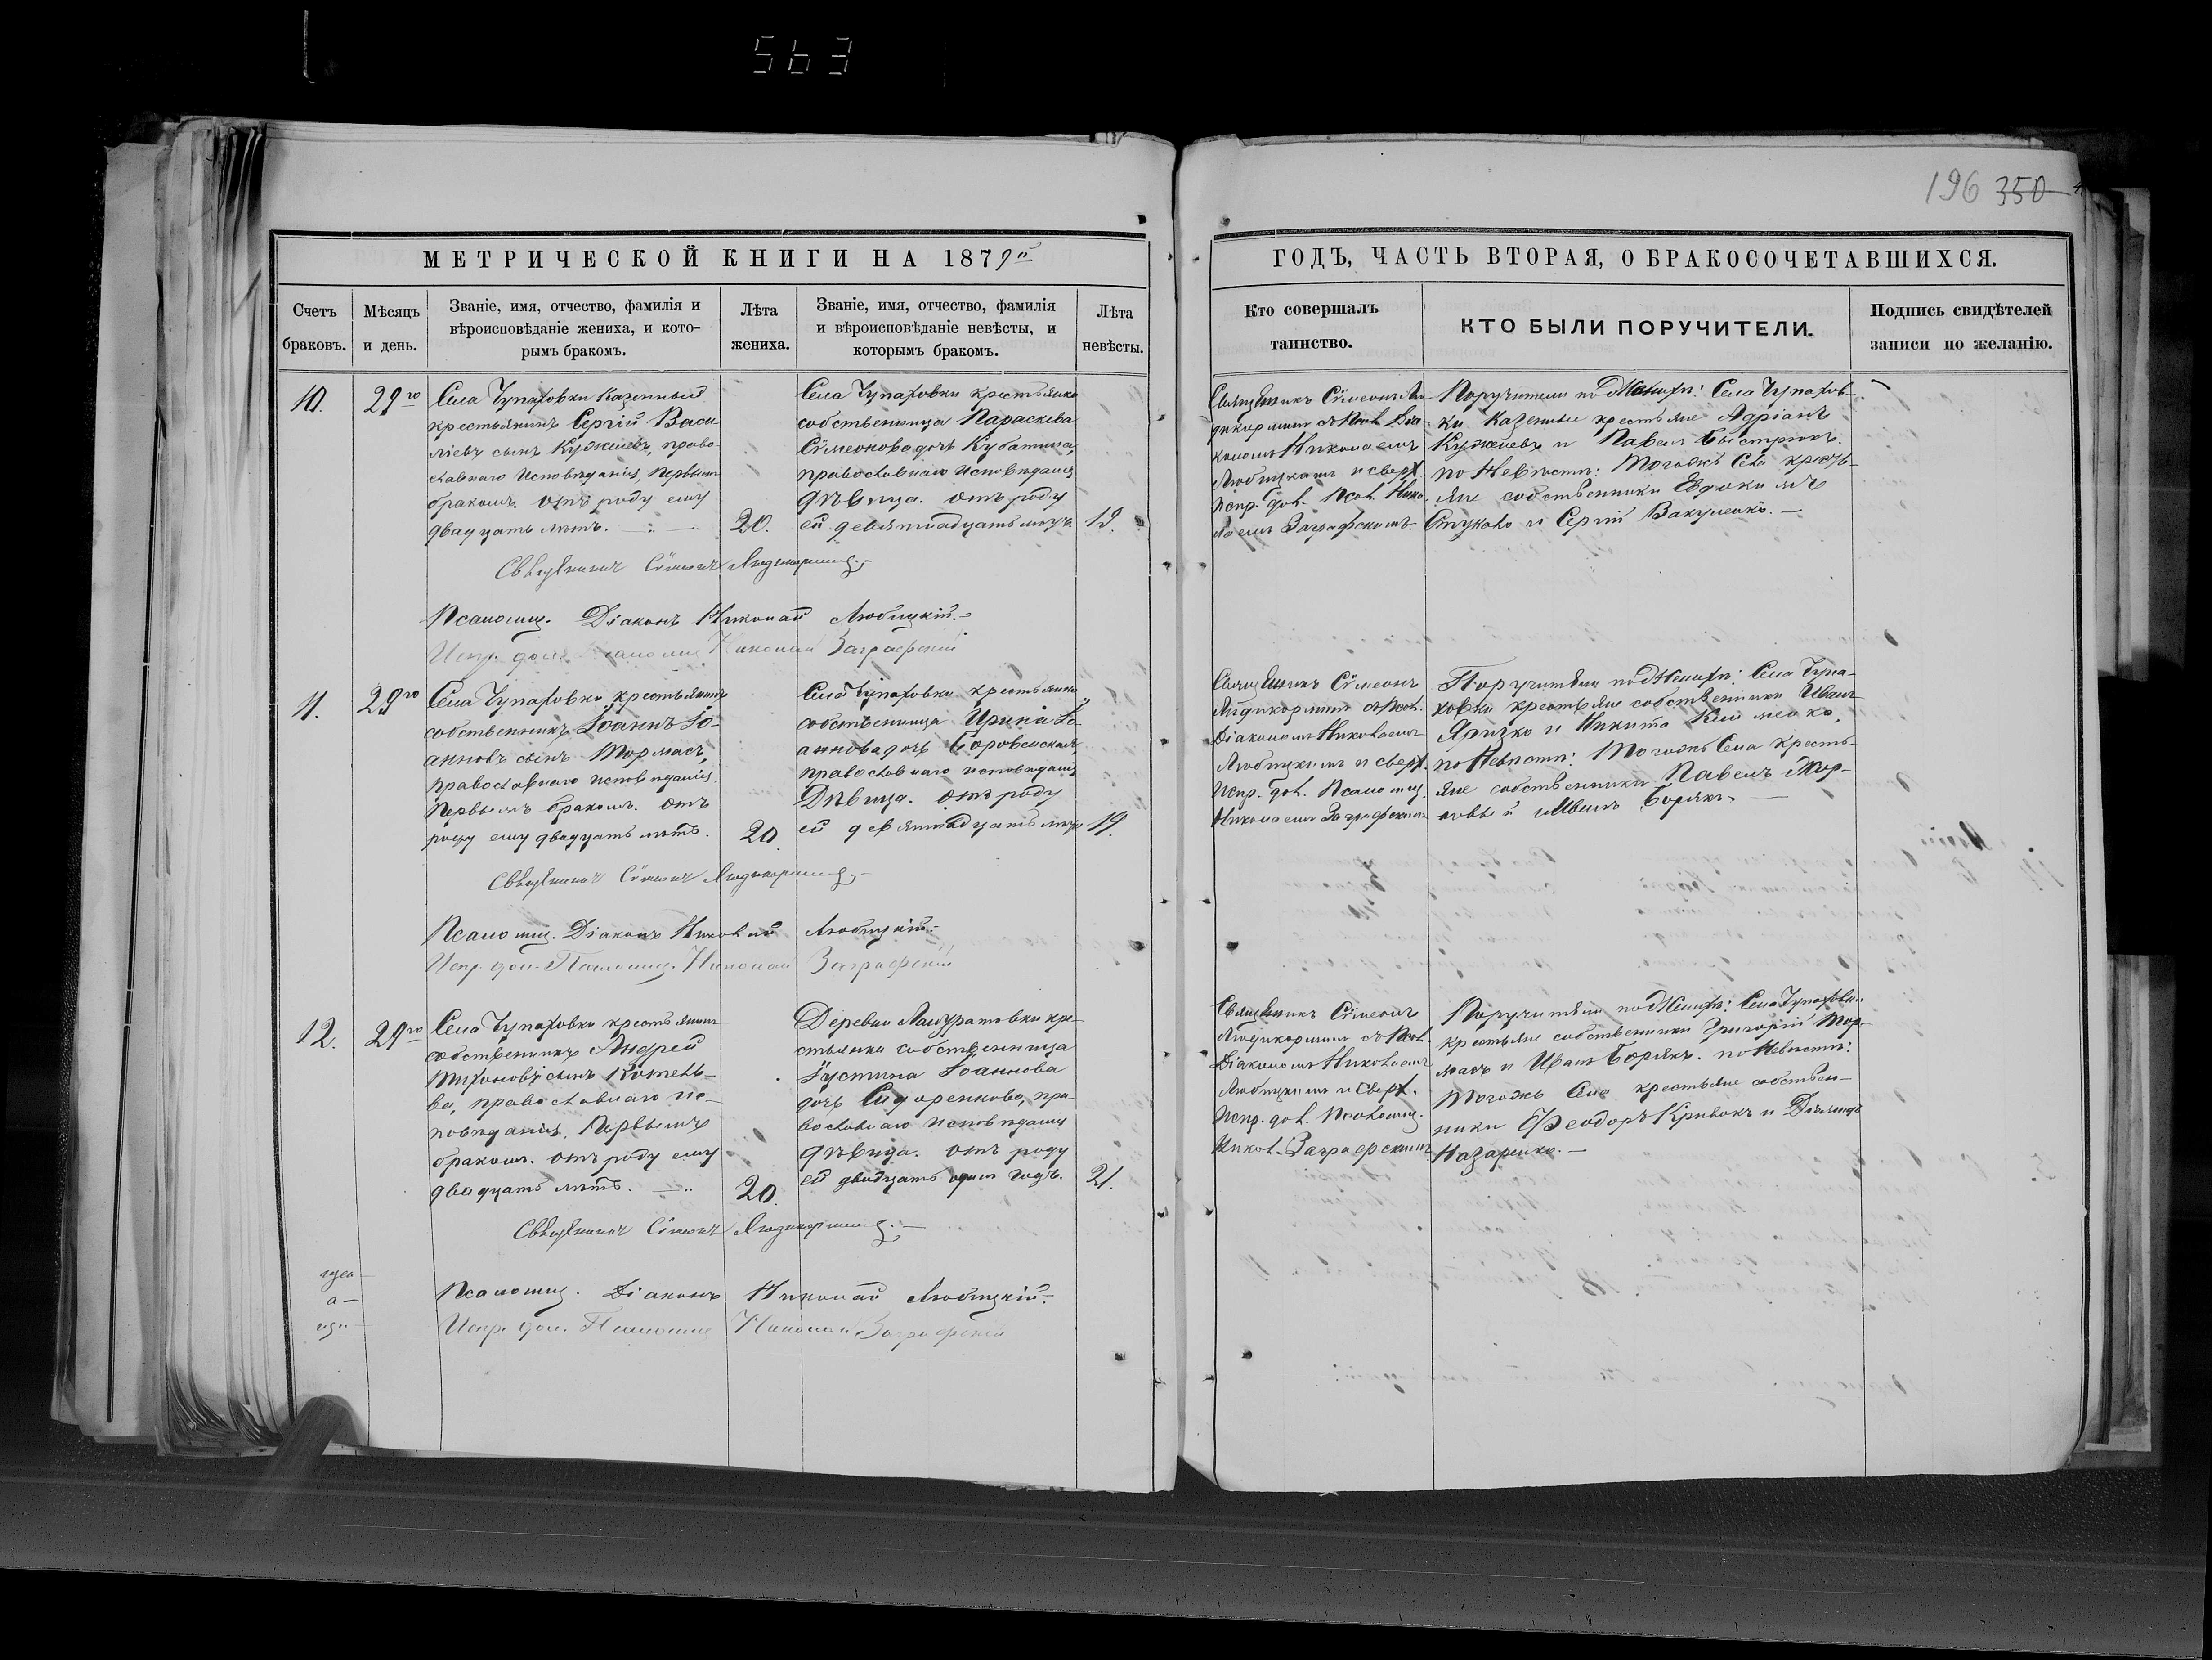 563
196 350
МЕТРИЧЕСКОЙ КНИГИ НА 1879й
Счетъ браковъ.
Мѣсяцъ и день.
Званіе, имя, отчество, фамилія и
вѣроисповѣданіе жениха, и кото-
рымъ бракомъ.
Лѣта жениха.
Званіе, имя, отчество, фамилія
и вѣроисповѣданіе невѣсты, и
которымъ бракомъ.
Лѣта невѣсты.
10.
29го
Села Чупаховки казенный
крестьянинъ Сергій Васи-
ліевъ сынъ Кужилевъ, право-
славнаго исповѣданія, первымъ
бракомъ. отъ роду ему
двадцать лѣтъ.
20.
Села Чупаховки крестьянка
собственница Параскева
Сѵмеонова дочь
православнаго исповѣданія
дѣвица. отъ роду
ей девятнадцать лѣтъ.
19.
Священникъ Сѵмеонъ
Псаломщ. Діаконъ Николай Любицкій.
Испр. дол. Псаломщ. Николай Заграфскій
11.
29го
Села Чупаховки крестьянинъ
собственникъ Іоаннъ Іо-
анновъ сынъ Тормасъ,
православнаго исповѣданія
первымъ бракомъ. отъ
роду ему двадцать лѣтъ.
20.
Села Чупаховки крестьянка
собственница Ирина Іо-
аннова дочь Боровенская,
православнаго исповѣданія
Дѣвица. отъ роду
ей девятнадцать лѣтъ
19.
Священникъ Сѵмеонъ
Псаломщ. Діаконъ Николай Любицкій.
Испр. дол. Псаломщ. Николай Заграфскій
12.
29го
Села Чупаховки крестьянинъ
собственникъ Андрей
Тихоновъ сынъ Котель-
ва, православнаго ис-
повѣданія. Первымъ
бракомъ. отъ роду ему
двадцать лѣтъ.
20
Деревни кре-
стьянка собственница
Іустина Іоаннова
дочь Сидоренкова, пра-
вославнаго исповѣданія
дѣвица. отъ роду
ей двадцать одинъ годъ.
21.
Священникъ Сѵмеонъ
Псаломщ. Діаконъ Николай Любицкій.
Испр. дол. Псаломщ. Николай Заграфскій
ГОДЪ, ЧАСТЬ ВТОРАЯ, О БРАКОСОЧЕТАВШИХСЯ.
Кто совершалъ таинство.
КТО БЫЛИ ПОРУЧИТЕЛИ.
Подпись свидѣтелей записи по желанію.
Священникъ Сѵмеонъ
съ Псал. Діа-
кономъ Николаемъ
Любицкимъ и сверх.
испр. дол. Псал. Нико-
лаемъ Заграфскимъ
Поручители по Женихѣ: Села Чупахов-
ки казенные крестьяне Адріанъ
Кужилевъ и Павелъ Быстрюкъ.
по Невѣстѣ: Тогожъ Села кресть-
яне собственники Евдокимъ
Стуково и Сергій Вакуленко.
Священникъ Сѵмеонъ
съ Псал.
Діакономъ Николаемъ
Любицкимъ и сверх.
испр. дол. Псаломщ.
Николаемъ Заграфскимъ
Поручители по Женихѣ: Села Чупа-
ховки крестьяне собственники Иванъ
Яричко и Никита
по Невѣстѣ: Тогожъ Села кресть-
яне собственники Павелъ
и Иванъ Борякъ.
Священникъ Сѵмеонъ
съ Псал.
Діакономъ Николаемъ
Любицкимъ и Сверх.
испр. дол. Псаломщ.
Никол. Заграфскимъ
Поручители по Женихѣ: Села Чупаховки
крестьяне собственники Григорій Тор-
масъ и Иванъ Борякъ. по Невѣстѣ:
Тогожъ Села крестьяне собствен-
ники Ѳеодоръ Кривокъ и
Назаренко.